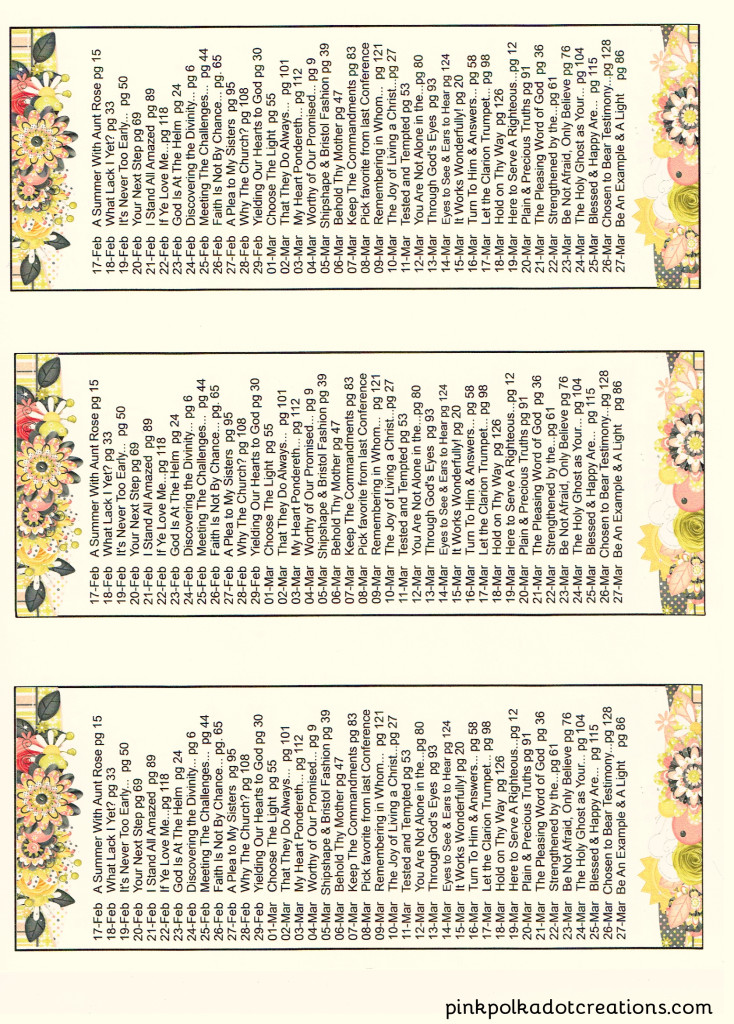 17-Feb A Summer With Aunt Rose pg 15
18-Feb What Lack I Yet? pg 33
19-Feb It's Never Too Early... pg 50
20-Feb Your Next Step pg 69
21-Feb I Stand All Amazed pg 89
22-Feb If Ye Love Me...pg 118
23-Feb God Is At The Helm pg 24
24-Feb Discovering the Divinity... pg 6
25-Feb Meeting The Challenges... pg 44
26-Feb Faith Is Not By Chance... pg. 65
27-Feb A Plea to My Sisters pg 95
28-Feb Why The Church? pg 108
29-Feb Yielding Our Hearts to God pg 30
01-Mar Choose The Light pg 55
02-Mar That They Do Always... pg 101
03-Mar My Heart Pondereth... pg 112
04-Mar Worthy of Our Promised... pg 9
05-Mar Shipshape & Bristol Fashion pg 39
06-Mar Behold Thy Mother pg 47
07-Mar Keep The Commandments pg 83
08-Mar Pick favorite from last Conference
09-Mar Remembering in Whom... pg 121
10-Mar The Joy of Living a Christ...pg 27
11-Mar Tested and Tempted pg 53
12-Mar You Are Not Alone in the...pg 80
13-Mar Through God's Eyes pg 93
14-Mar Eyes to See & Ears to Hear pg 124
15-Mar It Works Wonderfully! pg 20
16-Mar Turn To Him & Answers... pg 58
17-Mar Let the Clarion Trumpet... pg 98
18-Mar Hold on Thy Way pg 126
19-Mar Here to Serve A Righteous...pg 12
20-Mar Plain & Precious Truths pg 91
21-Mar The Pleasing Word of God pg 36
22-Mar Strengthened by the...pg 61
23-Mar Be Not Afraid, Only Believe pg 76
24-Mar The Holy Ghost as Your...pg 104
25-Mar Blessed & Happy Are... pg 115
26-Mar Chosen to Bear Testimony...pg 128
27-Mar Be An Example & A Light pg 86
17-Feb A Summer With Aunt Rose pg 15
18-Feb What Lack I Yet? pg 33
19-Feb It's Never Too Early... pg 50
20-Feb Your Next Step pg 69
21-Feb I Stand All Amazed pg 89
22-Feb If Ye Love Me...pg 118
23-Feb God Is At The Helm pg 24
24-Feb Discovering the Divinity... pg 6
25-Feb Meeting The Challenges... pg 44
26-Feb Faith Is Not By Chance... pg. 65
27-Feb A Plea to My Sisters pg 95
28-Feb Why The Church? pg 108
29-Feb Yielding Our Hearts to God pg 30
01-Mar Choose The Light pg 55
02-Mar That They Do Always... pg 101
03-Mar My Heart Pondereth... pg 112
04-Mar Worthy of Our Promised... pg 9
05-Mar Shipshape & Bristol Fashion pg 39
06-Mar Behold Thy Mother pg 47
07-Mar Keep The Commandments pg 83
08-Mar Pick favorite from last Conference
09-Mar Remembering in Whom... pg 121
10-Mar The Joy of Living a Christ...pg 27
11-Mar Tested and Tempted pg 53
12-Mar You Are Not Alone in the...pg 80
13-Mar Through God's Eyes pg 93
14-Mar Eyes to See & Ears to Hear pg 124
15-Mar It Works Wonderfully! pg 20
16-Mar Turn To Him & Answers... pg 58
17-Mar Let the Clarion Trumpet... pg 98
18-Mar Hold on Thy Way pg 126
19-Mar Here to Serve A Righteous...pg 12
20-Mar Plain & Precious Truths pg 91
21-Mar The Pleasing Word of God pg 36
22-Mar Strengthened by the...pg 61
23-Mar Be Not Afraid, Only Believe pg 76
24-Mar The Holy Ghost as Your...pg 104
25-Mar Blessed & Happy Are... pg 115
26-Mar Chosen to Bear Testimony...pg 128
27-Mar Be An Example & A Light pg 86
17-Feb A Summer With Aunt Rose pg 15
18-Feb What Lack I Yet? pg 33
19-Feb It's Never Too Early... pg 50
20-Feb Your Next Step pg 69
21-Feb I Stand All Amazed pg 89
22-Feb If Ye Love Me...pg 118
23-Feb God Is At The Helm pg 24
24-Feb Discovering the Divinity... pg 6
25-Feb Meeting The Challenges... pg 44
26-Feb Faith Is Not By Chance... pg. 65
27-Feb A Plea to My Sisters pg 95
28-Feb Why The Church? pg 108
29-Feb Yielding Our Hearts to God pg 30
01-Mar Choose The Light pg 55
02-Mar That They Do Always... pg 101
03-Mar My Heart Pondereth... pg 112
04-Mar Worthy of Our Promised... pg 9
05-Mar Shipshape & Bristol Fashion pg 39
06-Mar Behold Thy Mother pg 47
07-Mar Keep The Commandments pg 83
08-Mar Pick favorite from last Conference
09-Mar Remembering in Whom... pg 121
10-Mar The Joy of Living a Christ...pg 27
11-Mar Tested and Tempted pg 53
12-Mar You Are Not Alone in the...pg 80
13-Mar Through God's Eyes pg 93
14-Mar Eyes to See & Ears to Hear pg 124
15-Mar It Works Wonderfully! pg 20
16-Mar Turn To Him & Answers... pg 58
17-Mar Let the Clarion Trumpet... pg 98
18-Mar Hold on Thy Way pg 126
19-Mar Here to Serve A Righteous...pg 12
20-Mar Plain & Precious Truths pg 91
21-Mar The Pleasing Word of God pg 36
22-Mar Strengthened by the...pg 61
23-Mar Be Not Afraid, Only Believe pg 76
24-Mar The Holy Ghost as Your...pg 104
25-Mar Blessed & Happy Are... pg 115
26-Mar Chosen to Bear Testimony...pg 128
27-Mar Be An Example & A Light pg 86
pinkpolkadotcreations.com